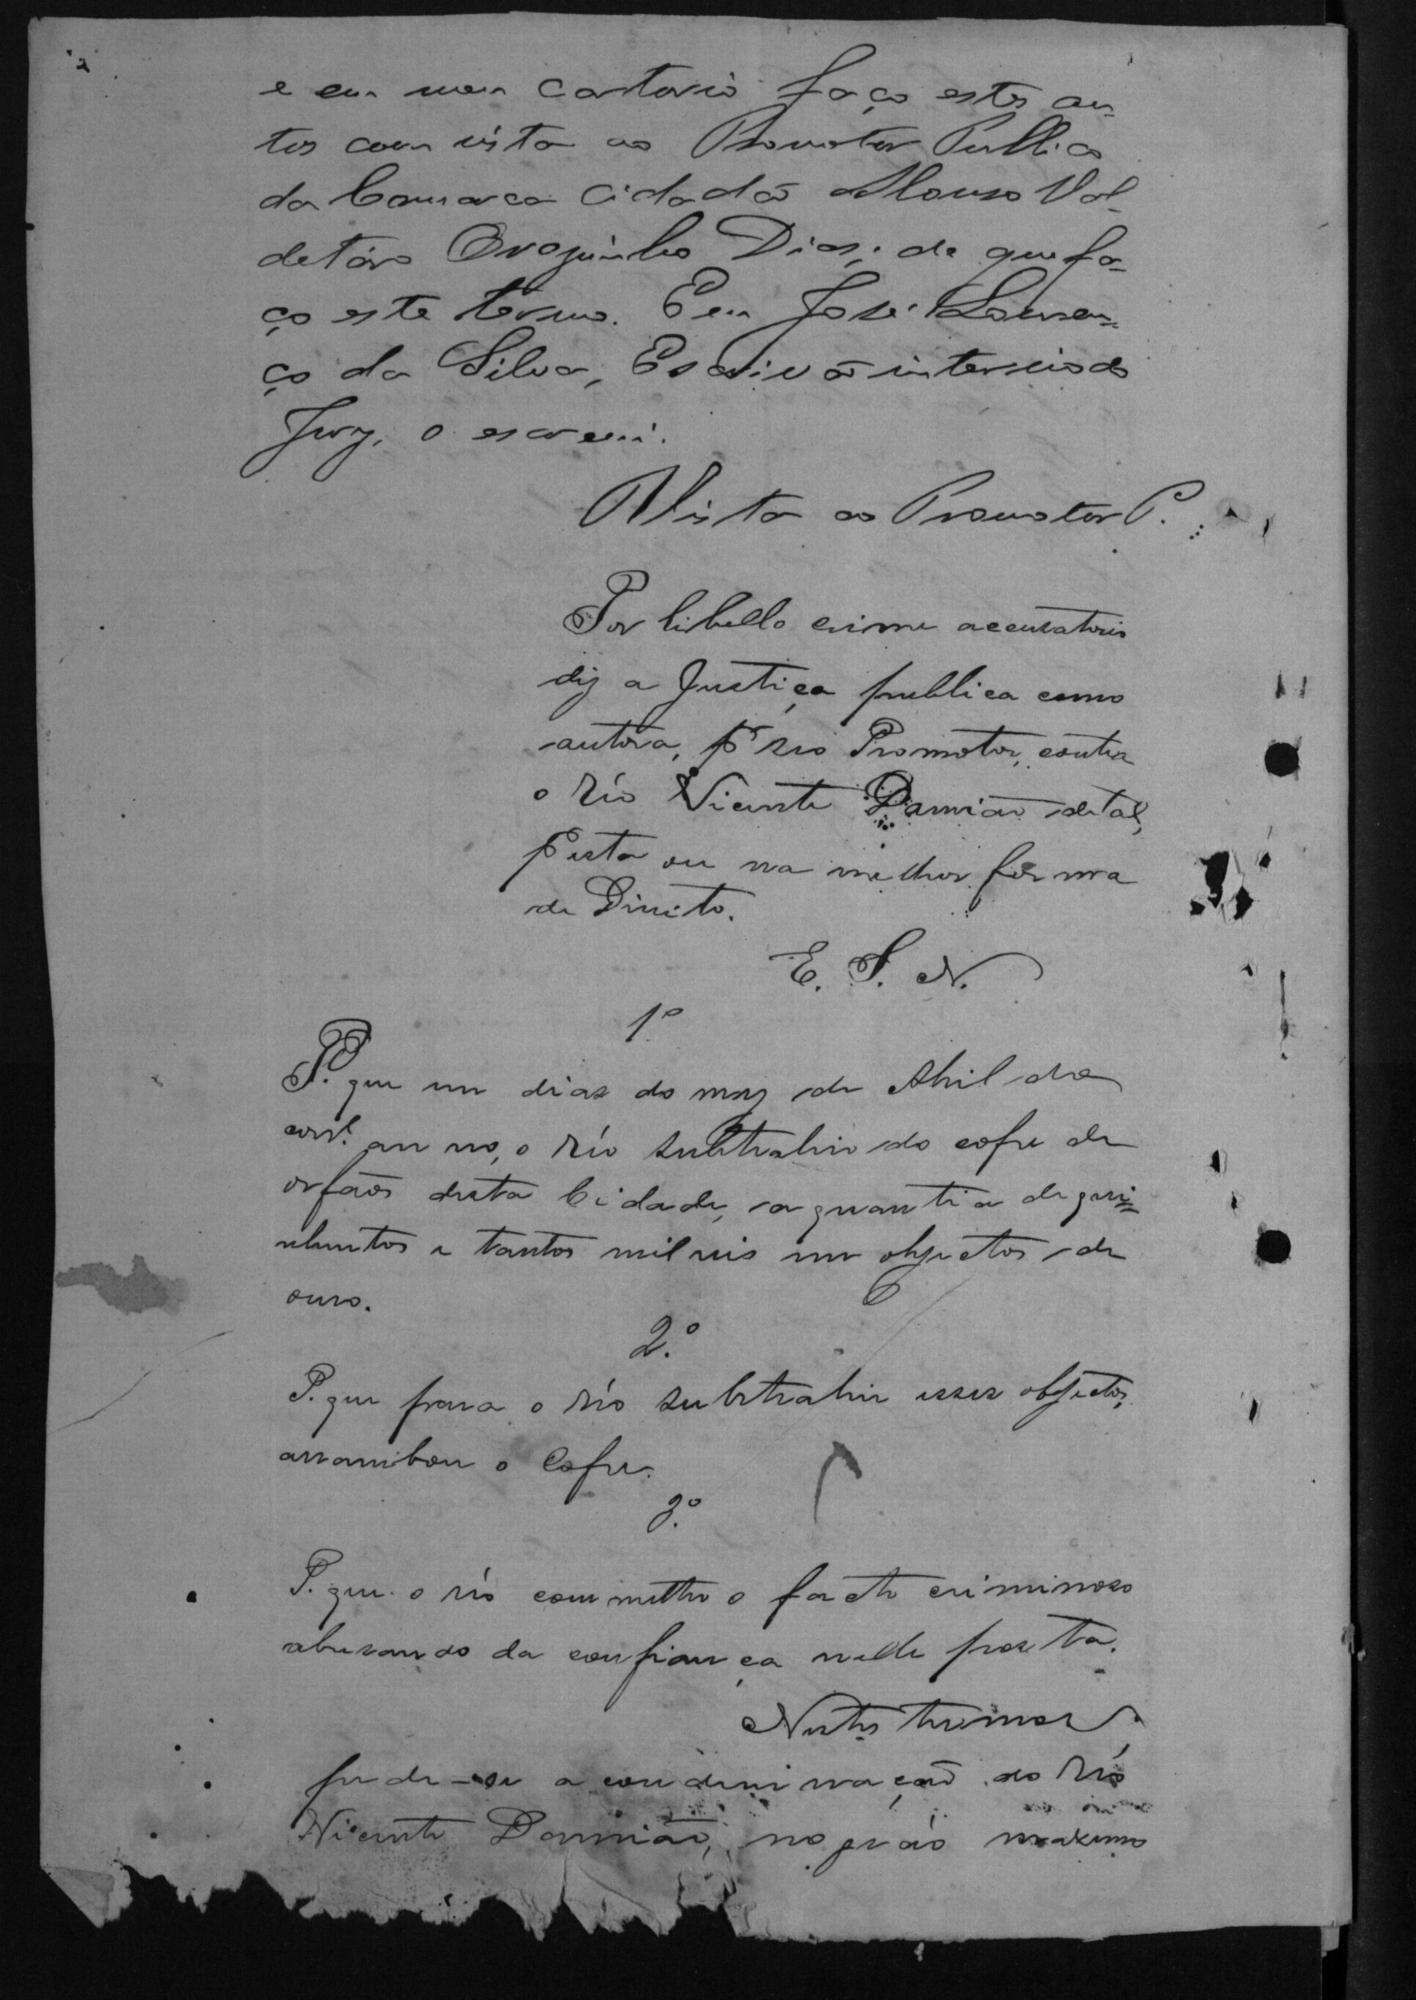 e em meu cartorio faço estes au-
tos com vista ao Promotor Publico
da Comarca cidadão Alonso Val-
detáro Dias; de que fa-
ço este termo. Eu José Louren-
ço da Silva, Escrivão interino do
Jury, o escrevi.
Vista ao Promotor P.
Por libello crime accusatorio
diz a Justiça publica como
autora, pr seo Promotor, contra
o réo Vicente Damião de tal,
Pesta ou na melhor forma
de Direito.
E. S. N.
1º
P. que em dias do mez de Abril do
corr.e anno, o réo subtrahio do cofre de
orfãos desta Cidade, a quantia de qui-
nhentos e tantos mil reis em objectos de
ouro.
2.º
P. que para o réo subtrahir esses objectos,
arrombou o Cofre.
3.º
P. que o réo commetteo o facto criminoso
abusando da confiança nelle posta.
Nestes termos,
pede-se a condemnação do réo
Vicente Damião, no gráo maximo